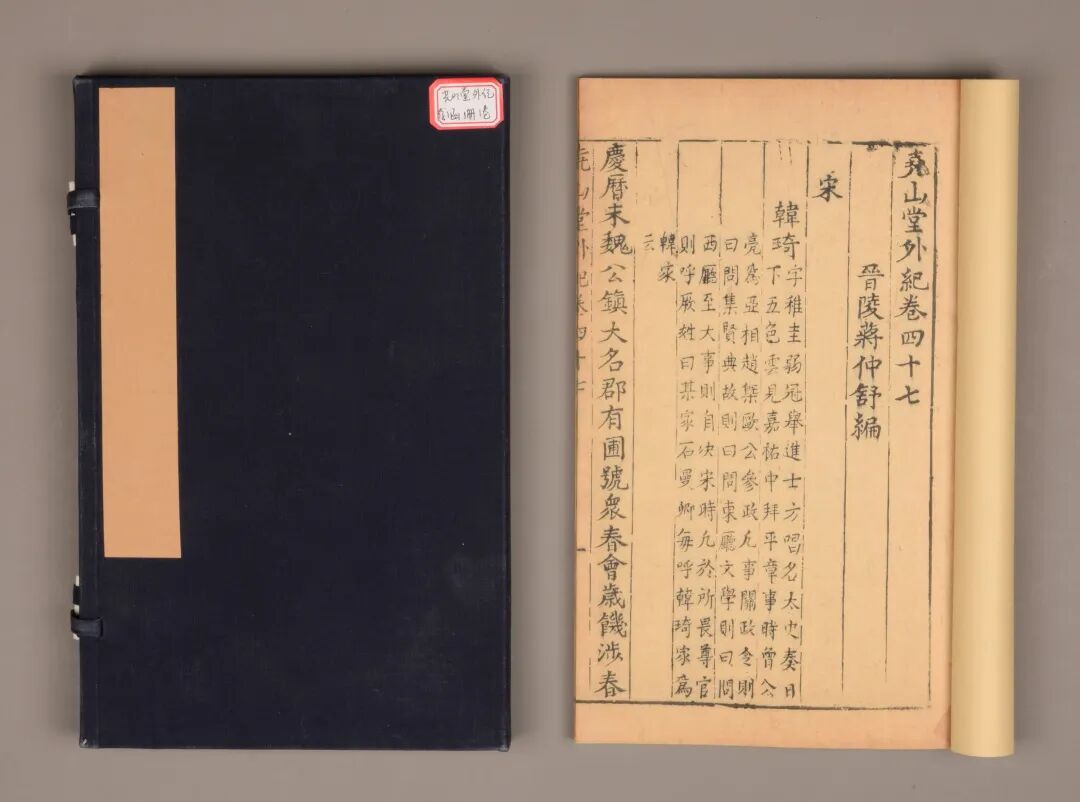 堯山堂外紀卷四十七
晉陵蔣仲舒編
宋
韓琦
字稚圭弱冠舉進士方唱名太史奏日
下五色雲見嘉祐中拜平章事時曾公
亮爲亞相趙槩歐公參政凡事關政令則
曰問集賢典故則曰問東廳文學則曰問
西廳至大事則自决宋時凡於所畏尊官
則呼厥姓曰某家石曼卿每呼韓琦家爲
韓家
云
慶曆末魏公鎮大名郡有圃號衆春會歲饑涉春
堯山堂外紀卷四十七
一
堯山堂外紀